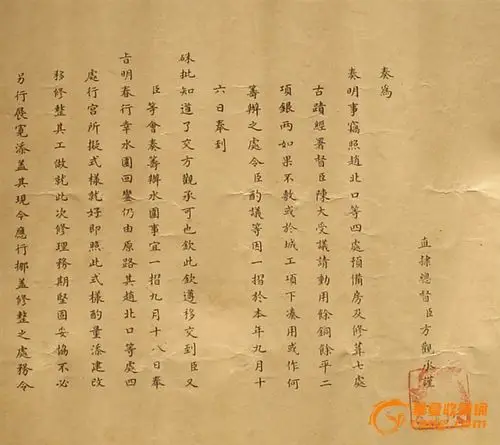 直隸總督臣方觀承謹
奏為
奏明事竊照趙北口等四處預備房及修葺七處
古蹟經署督臣陳大受議請動用餘銅餘平二
項銀兩如果不敷或於城工項下湊用或作何
籌辦之處令臣酌議等因一摺於本年九月十
六日奉到
硃批知道了交方觀承可也欽此欽遵移交到臣又
臣等會奏籌辦水圍事宜一摺九月十八日奉
旨明春行幸水圍回鑾仍由原路其趙北口等處四
處行宮所擬式樣就好即照此式樣酌量添建改
移修整其工做就此次修理務期堅固妥協不必
另行展寬添蓋其現今應行挪蓋修整之處務令